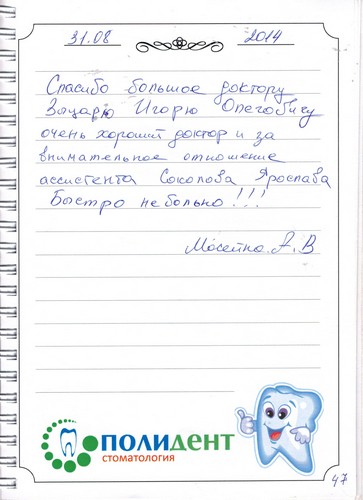 31.08 2014
Спасибо большое доктору
Зацарю Игорю Олеговичу
очень хороший доктор и за
внимательное отношение
ассистента Соколова Ярослава
Быстро небольно!!!
А.В
ПОЛИДЕНТ
СТОМАТОЛОГИЯ
47